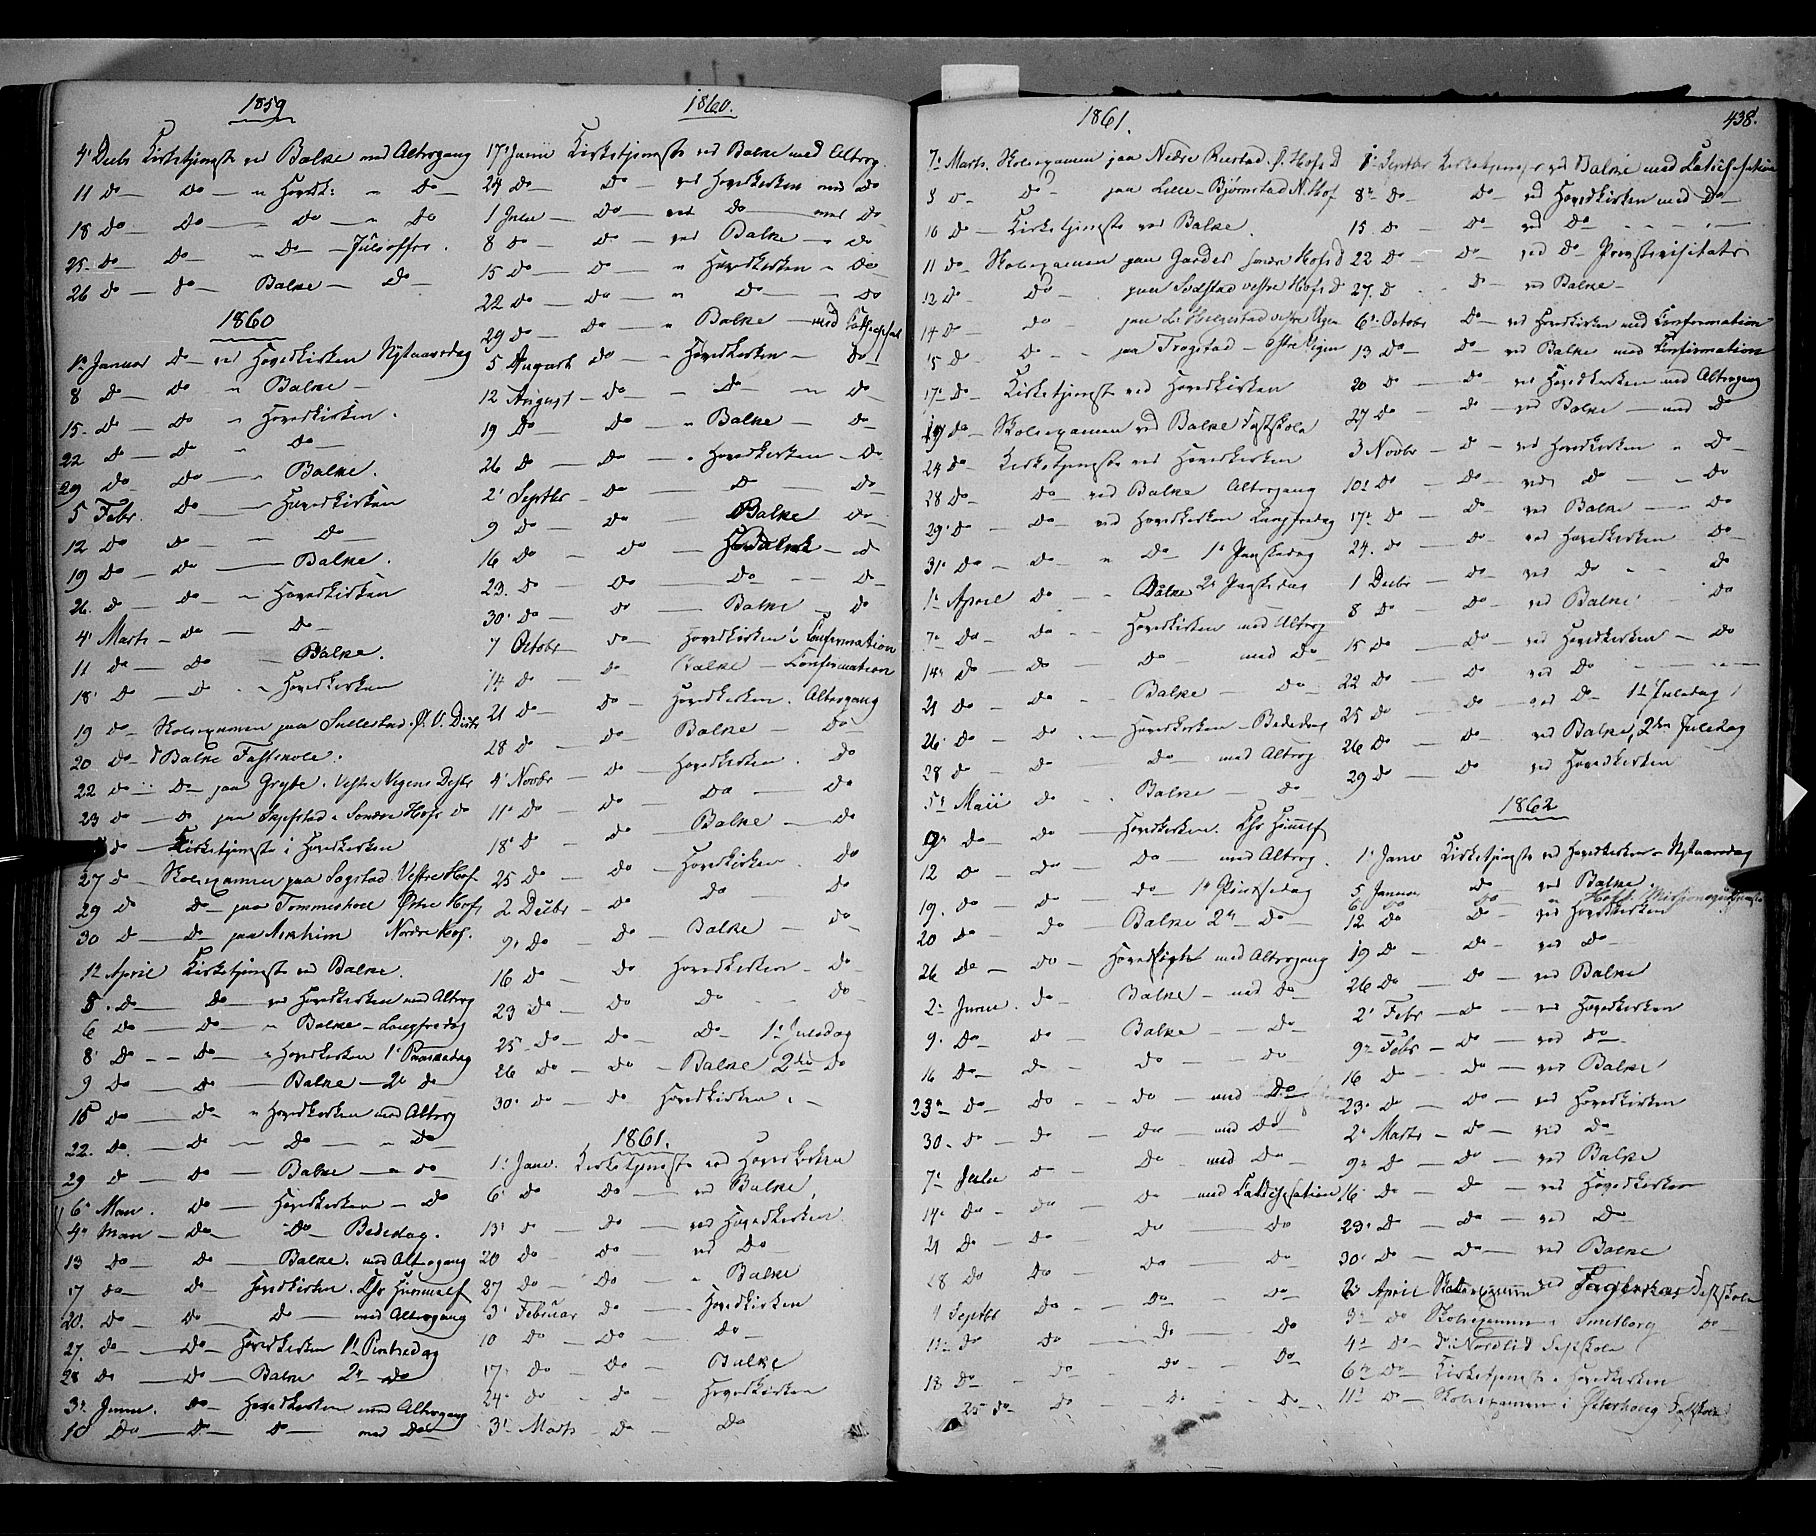 1859
4' Decbr Kirketjeneste ved Balke med Altergang
11 do — do — " Hovedk: " — do
18 do — do — do — " do
25 do — do " do — Juleoffer.
26 do — do — Balke — do
1860
1' Januar do — ved Hovedkirken Nytaarsdag
8 do — do " Balke —
15 do — do — " Hovedkirken.
22 do — do — " do —
29 do — do — " Balke.
5 Febr. do — " Hovedkirken
12 do do — " do —
19 do — do — Balke.
26. do — do — " Hovedkirken
4' Marts — do — do —
11 do — do — Balke.
18' do — do — " Hovedkirken
19 do — Skoleexamen paa Sullestad
20 do — do Balke Fastskole.
22 do — do — paa Vestre
23 do — do paa Søndre Hof
do — Kirketjeneste i Hovedkirken
27 do — Skoleexamen paa Sogstad Vestre Hof
29 do do — paa Tommeshol Østre Hof
30 do — do paa Nordre Hof.
1' April Kirketjeneste ved Balke.
5. do — do — ved Hovedkirken med Alterg
6 do — do — " Balke — Langfredag
8' do — do — " Hovedkirken 1' Paaskedag
9 do — do — Balke — 2' do
15 do — do — " Hovedkirken med Alterg
22. do. do — " do — " do
29 do — do — Balke — " do
6' Mai. do — Hovedkirken — do
4' Mai — do — do — Bededag.
13 do — do — Balke. med Altergang
17 do — do Hovedkirken. Chr Himmelf
20. do — do do — med Altergang
27. do — do — Hovedkirken 1' Pintsedag
28 do — do — Balke 2' do
3' Junii. do — Hovedkirken med Altergang
10 do — do — do — med do
1860.
17' Junii Kirketjeneste ved Balke med Alterg.
24 do — do — ved Hovedkirken med do
1 Julii — do — ved do — med do
8 do — do — ved Balke — " do
15 do — do — " Hovedkirken " do
22 do — do — " do — " do
29 do — do — " Balke — med
5 August do — " Hovedkirken — do
12 August — do — " do — " do
19 do — do — " Balke — do
26 do — do — " Hovedkirken — do
2' Septbr — do — do — do
9 do — do — Balke do —
16 do — do — — do
23. do — do — do — do
30' do — do — Balke — do
7 Octobr do — Hovedkirken Confirmation
14 do — do Balke — Confirmation
21 do — do — Hovedkirken. Altergang
28 do — do — Balke — do
4' Novbr — do — Hovedkirken. do
11' do — do — do — do
18' do — do — Balke — do
25 do — do — Hovedkirken. do
2 Decbr — do — do do
9' do — do — Balke — do
16 do — do Hovedkirken — do
23 do — do do — do
25 do — do — do 1' Juledag
26 do — do — Balke 2den do
30' do — do Hovedkirken.
1861.
1' Janr. Kirketjeneste ved Hovedkirken
6' do do — ved Balke
13' do — do — ved Hovedkirken
20 do — do — ved do
27 do — do — " Balke
3' Februar do — Hovedkirken
10 do — do — do —
17' do do — Balke
24' do — do — Hovedkirken
3' Marts — do — do
1861.
438.
7' Marts. Skoleexamen paa Nedre
8 do — do — paa Lille-Bjørnstad N. Hof
10 do — Kirketjeneste ved Balke.
11 do Skoleexamen paa søndre Hofs d
12 do — do — paa vestre Hofs d
14 do — do — paa
15 do do — paa Trogstad — østre
17' do — Kirketjeneste ved Hovedkirken
19 do — Skoleexamen ved Balke Fastskole
24 do — Kirketjeneste ved Hovedkirken
28 do — do — ved Balke Altergang
29' do — do — ved Hovedkirken Langfredag
31' do — do — " do 1' Paaskedag
1' April do — " Balke 2' Paaskedag
7' do — do — Hovedkirken med Alterg
14' do — do — do — med do
21 do — do Balke — do —
26' do — do — Hovedkirken — Bededag
28 do — do — do — med Alterg
5' Maii do — Balke — do
9' do — do — Hovedkirken. Chr Himmelf
12 do — do — do — med Alterg.
19. do — do — do — 1' Pintsedag
20 do — do — Balke 2' do
26 do — do — med Altergang
2' Junii. do — Balke — med do
9. do — do — Balke — do
16 do — do — do — do
23' do — do — do — med do
30. do — do — do — med do
7' Julii do — do — med do —
14' do — do do — med Catechisation
21 do — do do do
28 do do — do — do
1 Septbr do — do — do
do — do — do — do
18 do — do — do — do
25 do — do — do — do
1' Septbr Kirketjeneste ved Balke med Catechisation
8' do — do — ved Hovedkirken med do
15 do — do — ved do
22 do — do — ved do Provstevisitats
27. do — do — ved Balke —
6' Octobr do — ved Hovedkirken med Confirmation
13 do — do — ved Balke med Confirmation
20 do — do — ved Hovedkirken med Altergang
27 do — do — ved Balke — med do
3 Novbr — do — ved Hovedkirken " do
10' do — do — ved do — " do
17' do — do — ved Balke — do
24. do — do — ved Hovedkirken do
1 Decbr — do — ved do " do
8 do — do — ved Balke do
15 do — do — ved Hovedkirken — do
22 do — do — ved do
25 do — do — ved do — 1' Juledag
26 do — do — ved Balke, 2den Juledag
29 do — do ved Hovedkirken
1862
1' Janr Kirketjeneste ved Hovedkirken — Nytaarsdag
5 Januar do — ved Balke
6 do do "
12 do do — ved Hovedkirken
19 do — do — ved do
26 do — do — ved Balke
2' Febr — do — ved Hovedkirken
9' Febr — do — ved do
16 do — do — ved Balke
23' do — do — ved Hovedkirken
2' Marts — do — ved do
9' do — do — ved Balke
16' do — do — ved Hovedkirken
23' do — do — ved do
30' do — do — ved Balke
2' April Skoleexamen ved Fastskole
3' do Skoleexamen Smeborg do
4' do do Nordlid Fastskole
6' do Kirketjeneste Hovedkirken
11' do — Skoleexamen i Fastskole